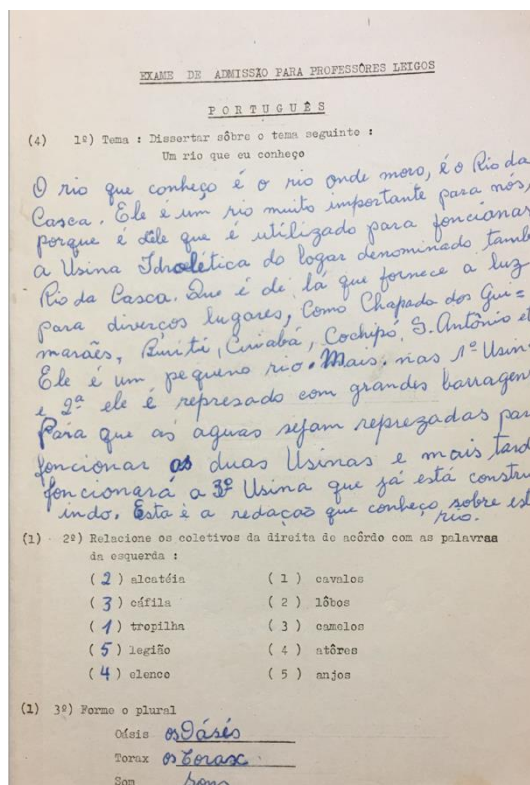 EXAME DE ADMISSÃO PARA PROFESSÔRES LEIGOS
PORTUGUÊS
(4) 1º) Tema : Dissertar sôbre o tema seguinto :
Um rio que eu conheço
O rio que conheço é o rio onde moro, é o Rio da
Casca. Ele é um rio muito importante para nós,
porque é dele que é utilizado para foncionar
a Usina Idroletica do logar denominado tamb
Rio da Casca. Que é de lá que fornece a luz
para diverços lugares, Como Chapada dos Gui=
marães, Buriti, Cuiabá, Cochipó, S. Antônio et
Ele é um pequeno rio. Mais, nas 1º Usin
e 2ª ele é represado com grandes barragen
Para que as aguas sejam reprezadas par
foncionar as duas Usinas e mais tard
foncionará a 3º Usina que já está constru
indo. Esta é a redaçaõ que conheço sobre est
rio.
(1) 2º) Relacione os coletivos da direita de acôrdo com as palavras
da esquerda :
( 2 ) alcatéia ( 1 ) cavalos
( 3 ) cáfila ( 2 ) lôbos
( 1 ) tropilha ( 3 ) camelos
( 5 ) legião ( 4 ) atôres
( 4 ) elenco ( 5 ) anjos
(1) 3º) Forme o plural
Oásis os Oásés
Torax os torax.
Som sons